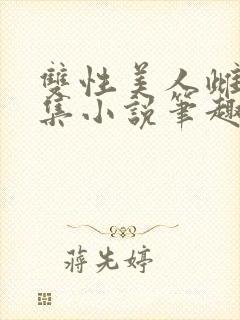 雙性美人雌
集小說筆趣
蔣先婷